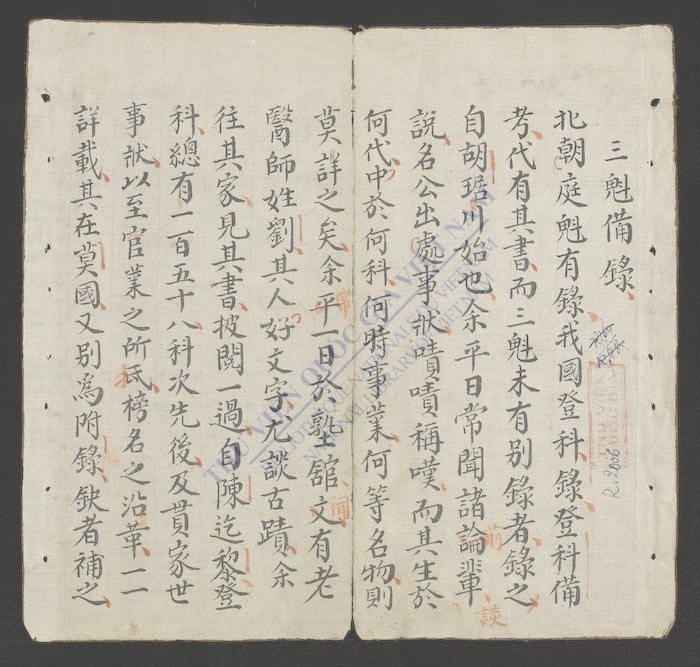 三魁備錄
北朝庭魁有錄我國登科錄登科備
考代有其書而三魁未有別錄者錄之
自胡琚川始也余平日常聞諸論輩
前
談
說名公出處事狀嘖嘖稱嘆而其生於
何代中於何科何時事業何等名物則
莫詳之矣余平一日於塾舘文有老
常
間
醫師姓劉其人好文字尤談古蹟余
往其家見其書披閱一過自陳迄黎登
科總有一百五十八科次先後及貫家世
事狀以至官業之所底榜名之沿革一一
詳載其在莫國又別爲附錄缺者補之
R.2066
THƯ VIỆN QUỐC GIA VIỆT NAM
BIBLIOTHEQUE NATIONALE DU VIETNAM
NATIONAL LIBRARY OF VIETNAM